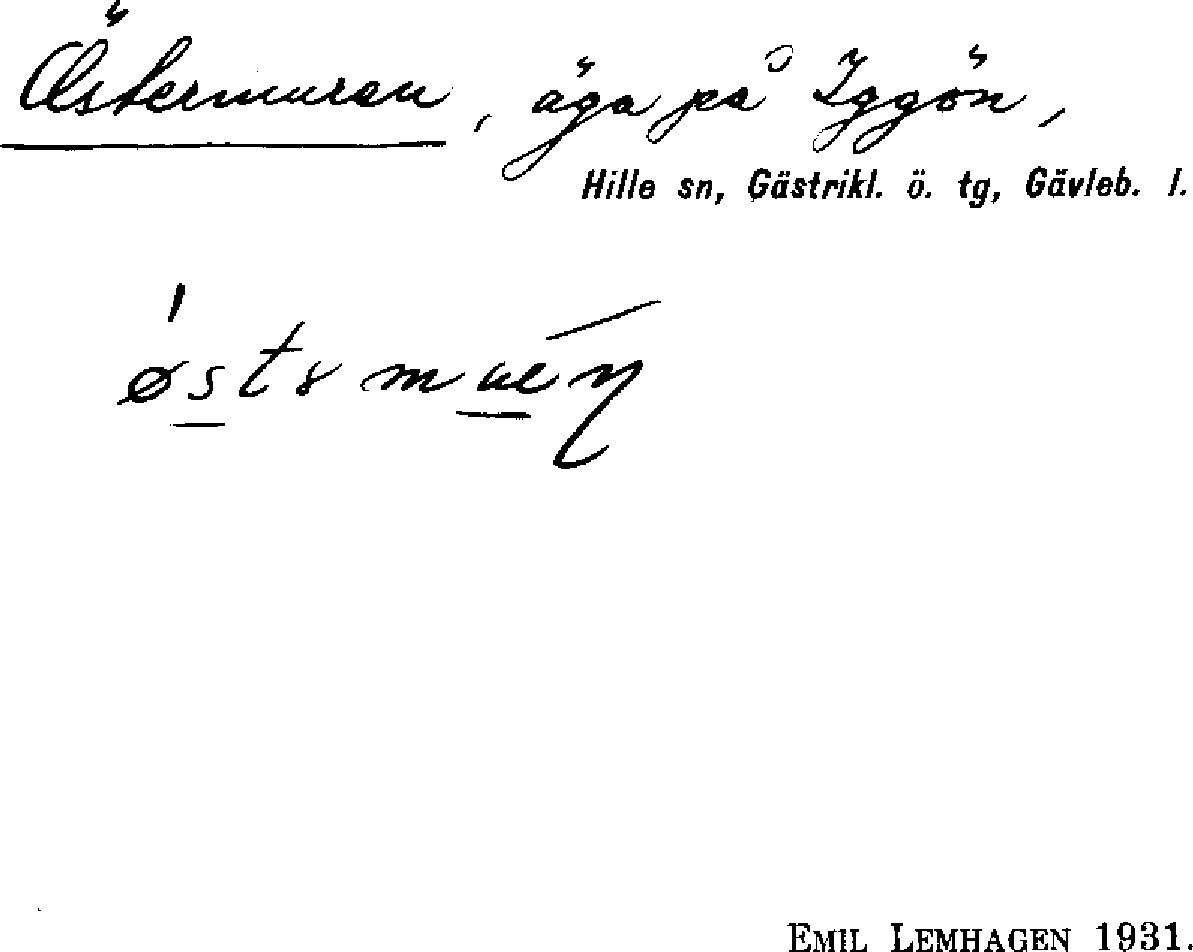 Östermuren, äga på Iggön,
Hille sn, Gästrikl. ö. tg, Gävleb. l.
EMIL LEMHAGEN 1931.